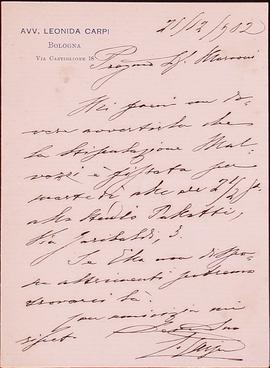 AVV. LEONIDA CARPI
BOLOGNA
VIA CASTIGLIONE 18
21/12/902
Pregmo Sg. Marconi
Mi pare un do-
vere avvertirla che
la stipulazione Mal-
vezzi è fissata per
martedì alle ore 2 1/2
allo studio
Via Garibaldi, 3.
Se Ella non dispo-
ne altrimenti potremo
trovarci là.
Con amicizia mi
Suo
L. Carpi